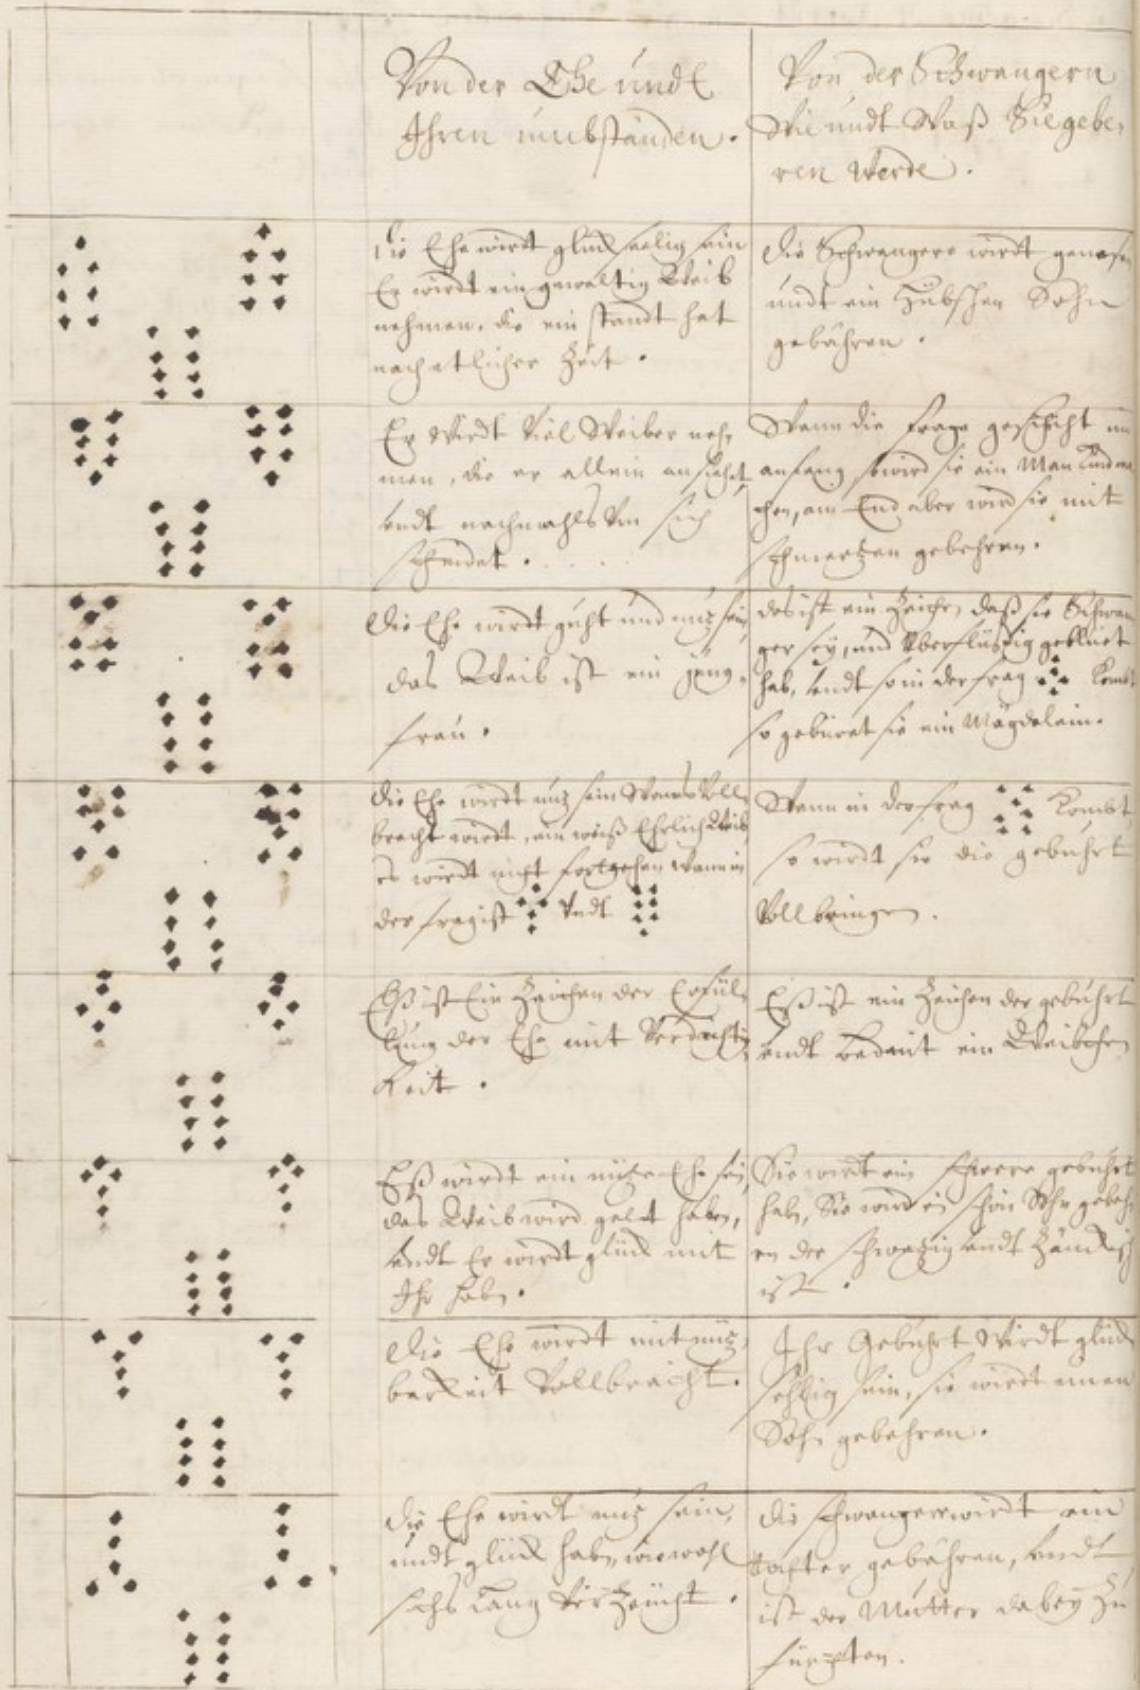 Von der Ehe undt
Ihren umbständen.
Von der Schwangern
Wie undt Waß Sie gebe,
ren werde.
die Ehe wirdt glückseelig sein
Er wirdt ein gewaltig Weib
nehmen, die ein standt hat
nach etlicher Zeit.
die Schwangere wirdt genesen
undt ein Hübschen Sohn
gebähren.
Er Wirdt Viel Weiber neh,
men, die er allein ansiehet,
undt nachmahls Von sich
scheidet.
Wann die frage geschicht im
anfang so wird sie ein Man Kind ma
chen, am End aber wird sie mit
schmertzen gebehren.
die Ehe wirdt guht und nuz sein,
das Weib ist ein Jung,
frau.
das ist ein Zeichen, daß sie Schwan
ger sey, und Überflüssig geblüet
hab, undt so in der frag Kombt
so gebüret sie ein Mägdelein.
die Ehe wirdt nuz sein Wann Voll
bracht wirdt, ein weiß Ehrlich Weib
es wirdt nicht fortgehen wann in
der frag ist Undt
Wann in der frag Kombt,
so wirdt sie die gebuhrt
Vollbringen.
Eß ist Ein Zeichen der Erfül,
lung der Ehe mit Verdächtig
keit.
Eß ist ein Zeichen der gebuhrt
undt bedeut ein Weibchen
Eß wirdt ein nüze Ehe sein
das Weib wird geldt haben,
undt Er wirdt glück mit
Ihr haben.
Sie wirdt ein schwere gebuhrt
haben, Sie wird ein schön Sohn gebeh
ren der schwazig undt Zänckisch
ist.
die Ehe wirdt mit nuz,
barkeit Vollbracht.
Ihr Gebuhrt Wirdt glück
sehlig sein, sie wirdt einen
Sohn gebehren.
die Ehe wirdt nuz sein,
undt glück haben, wiewohl
sichs Lang Verzeücht.
die schwangere wirdt ein
tochter gebähren, undt
ist der Mutter dabey Zu
fürchten.